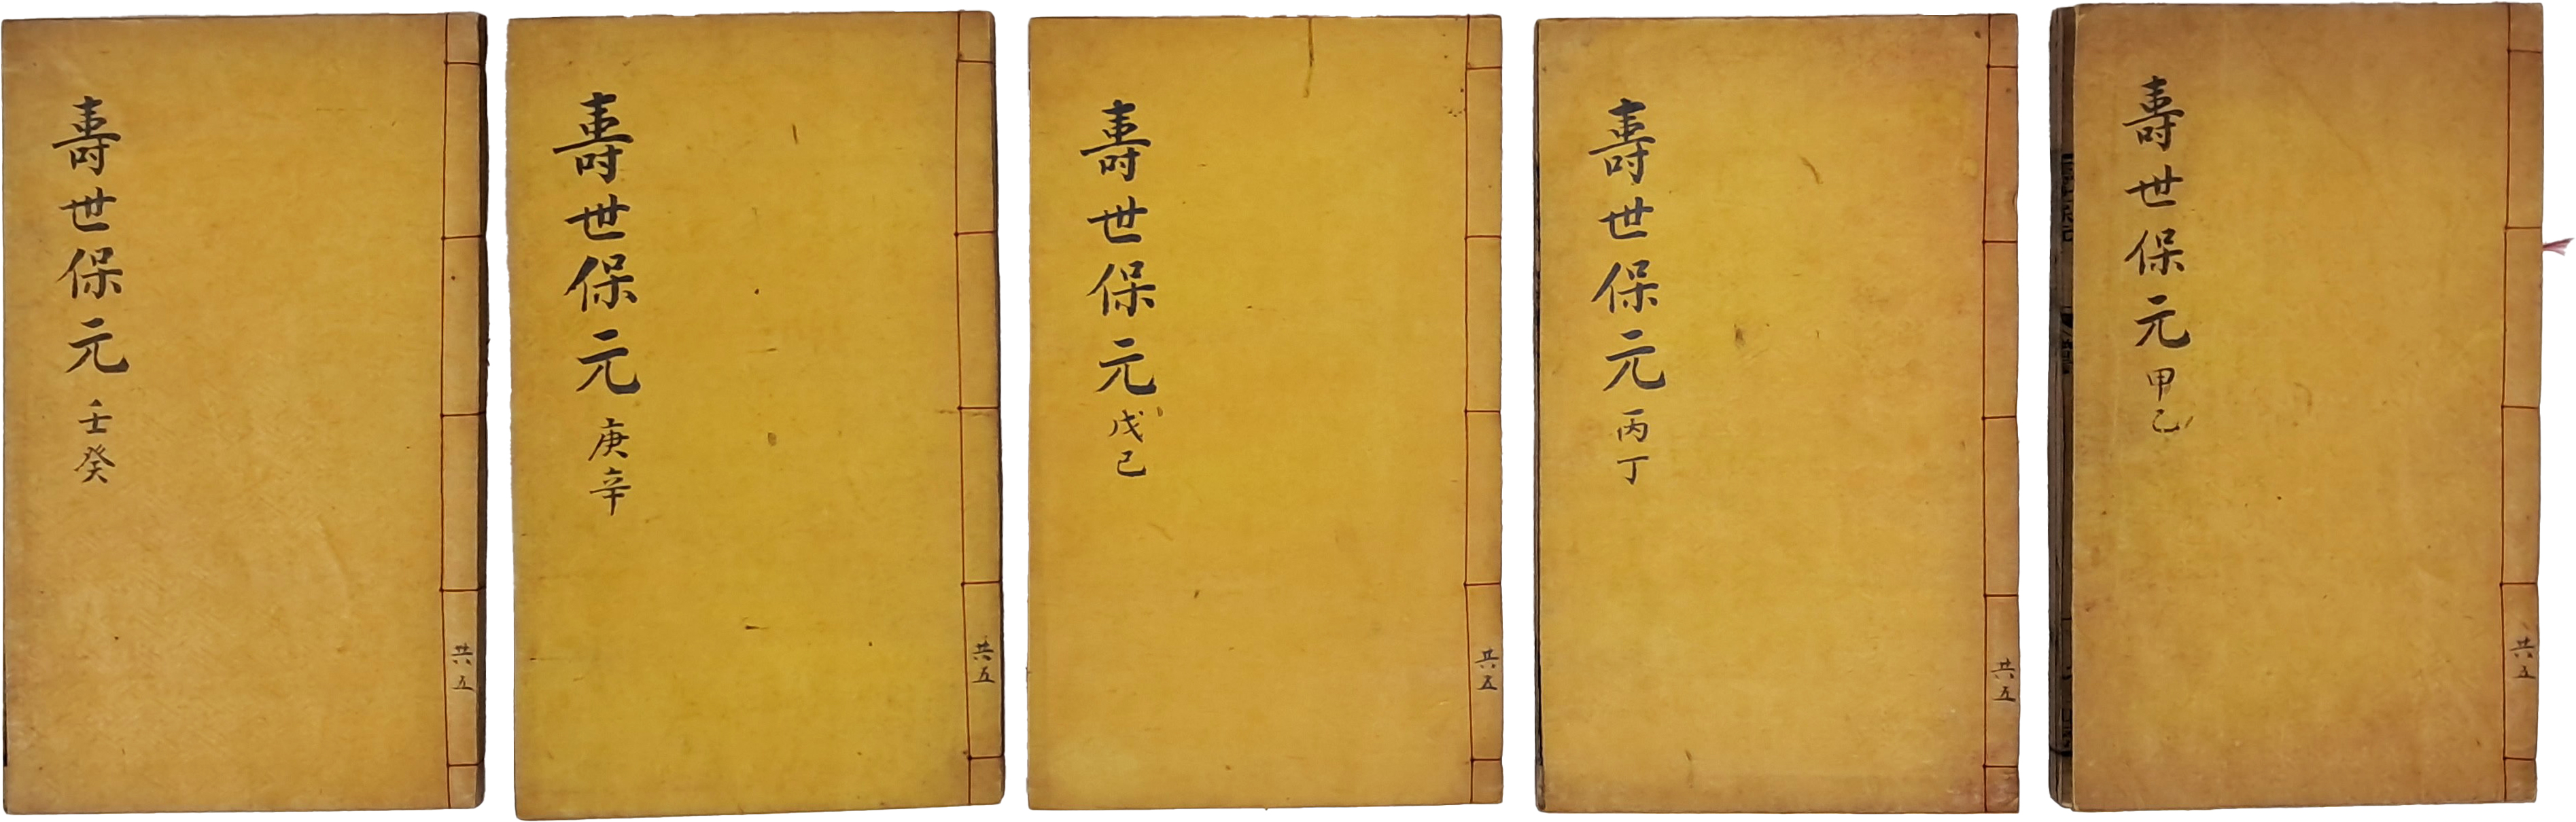 壽世保元 甲乙
共五
壽世保元 丙丁
共五
壽世保元 戊己
共五
壽世保元 庚辛
共五
壽世保元 壬癸
共五